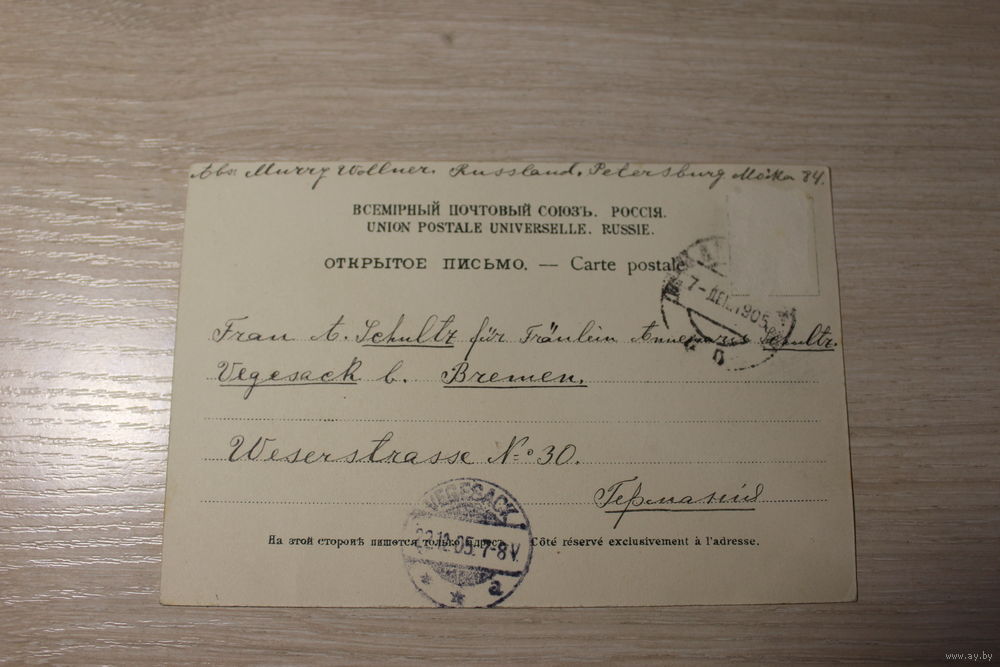 Abs. Murry Wollner. Russland. Petersburg Moika 84.
ВСЕМІРНЫЙ ПОЧТОВЫЙ СОЮЗЪ. РОССІЯ.
UNION POSTALE UNIVERSELLE. RUSSIE.
ОТКРЫТОЕ ПИСЬМО. — Carte postale
7-ДЕК.1905
Frau A. Schultz für Fräulein Annemarie Schultz.
Vegesack b. Bremen.
Weserstrasse No 30.
Германія
VEGESACK
22.12.05.7-8V.
* * a
На этой сторонѣ пишется только адресъ. Côté réservé exclusivement à l'adresse.
www.ay.by